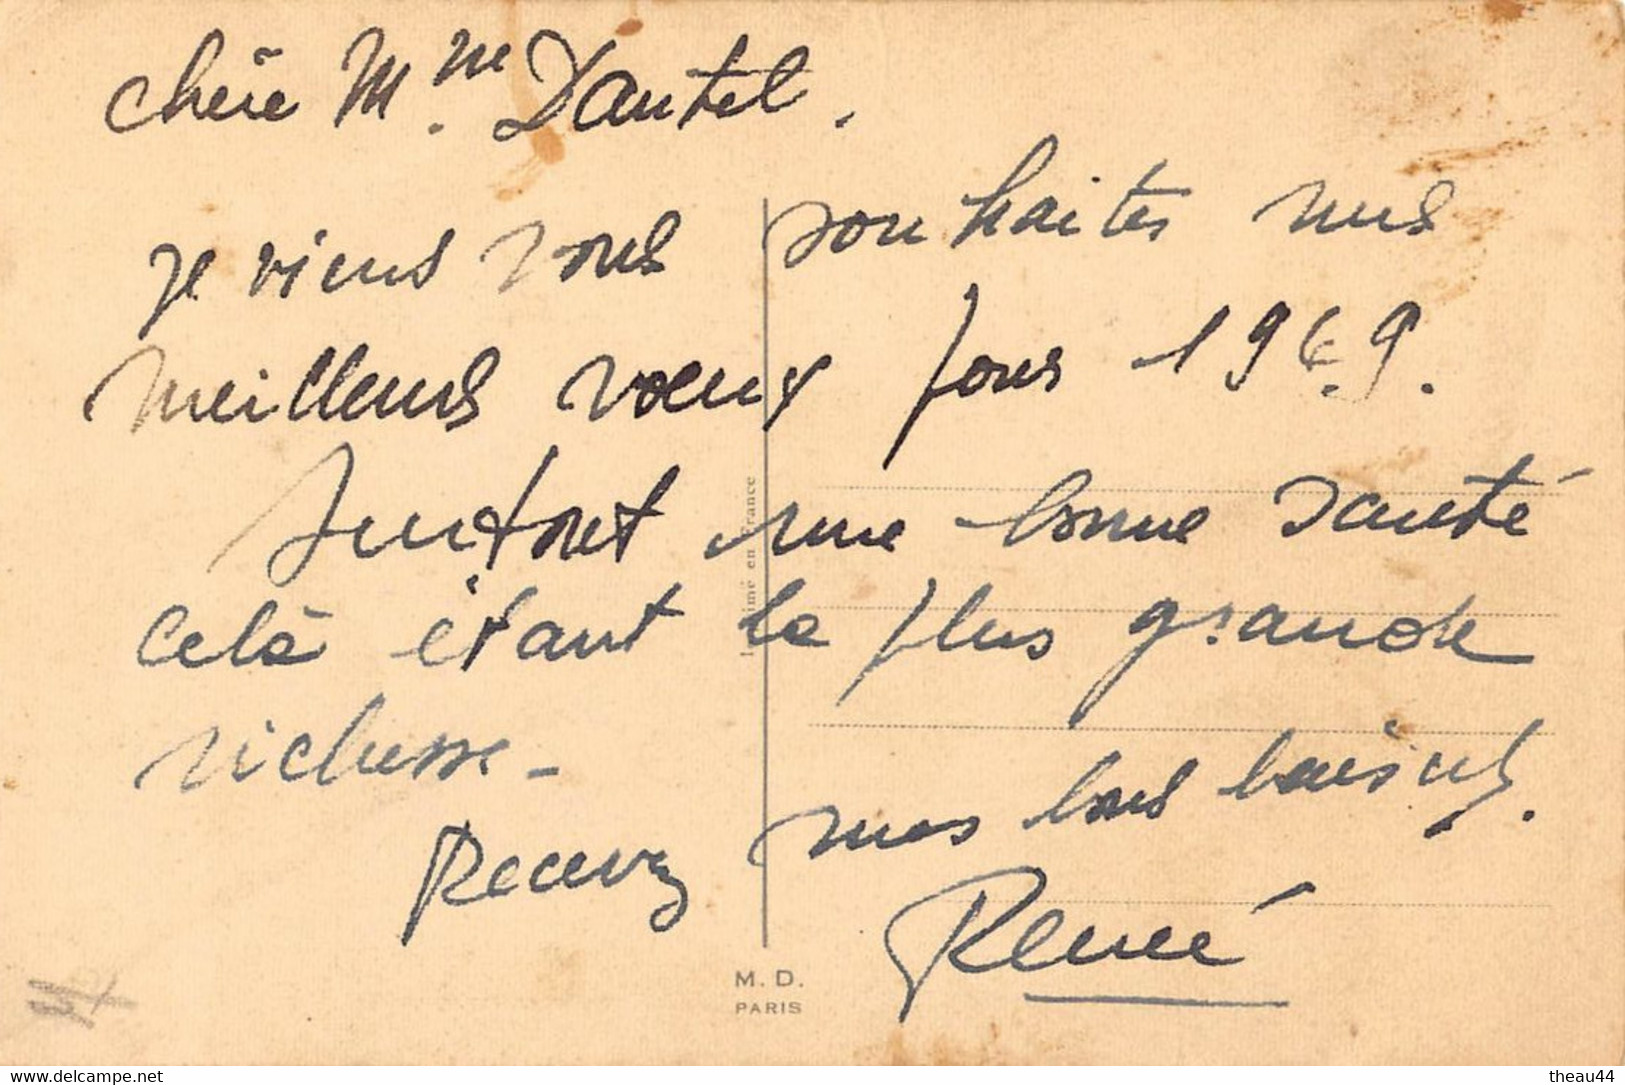 Chère Mme Dautel.
je viens vous souhaiter mes
meilleurs vœux pour 1969.
Surtout une bonne santé
celà étant la plus grande
richesse -
Recevez mes bons baisers.
René
Imprimé en France
M. D.
PARIS
www.delcampe.net
theau44